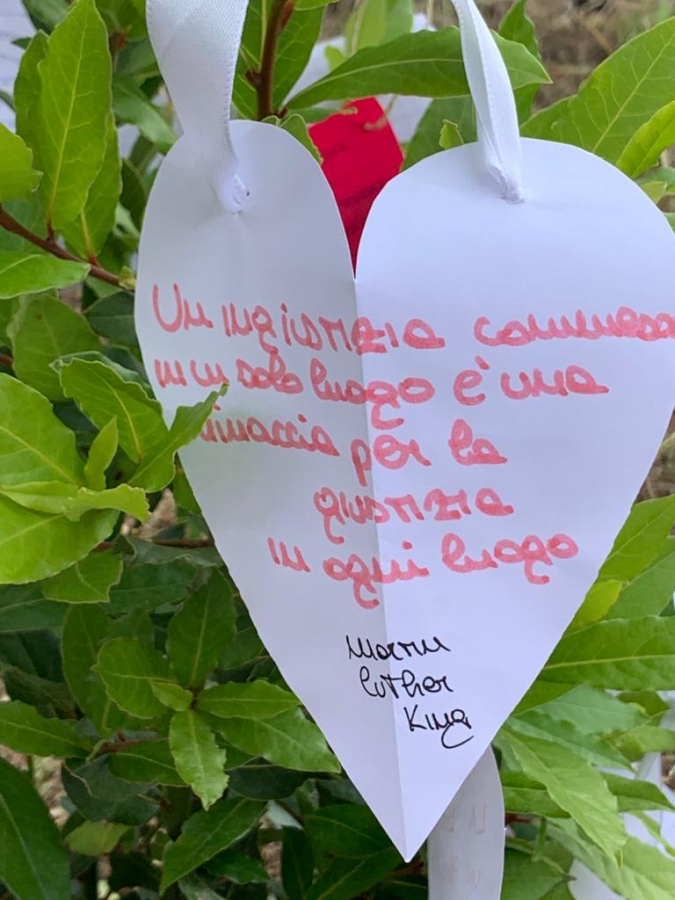 Un ingiustizia commessa
in un solo luogo è una
minaccia per la
giustizia
in ogni luogo
Martin
Luther
King